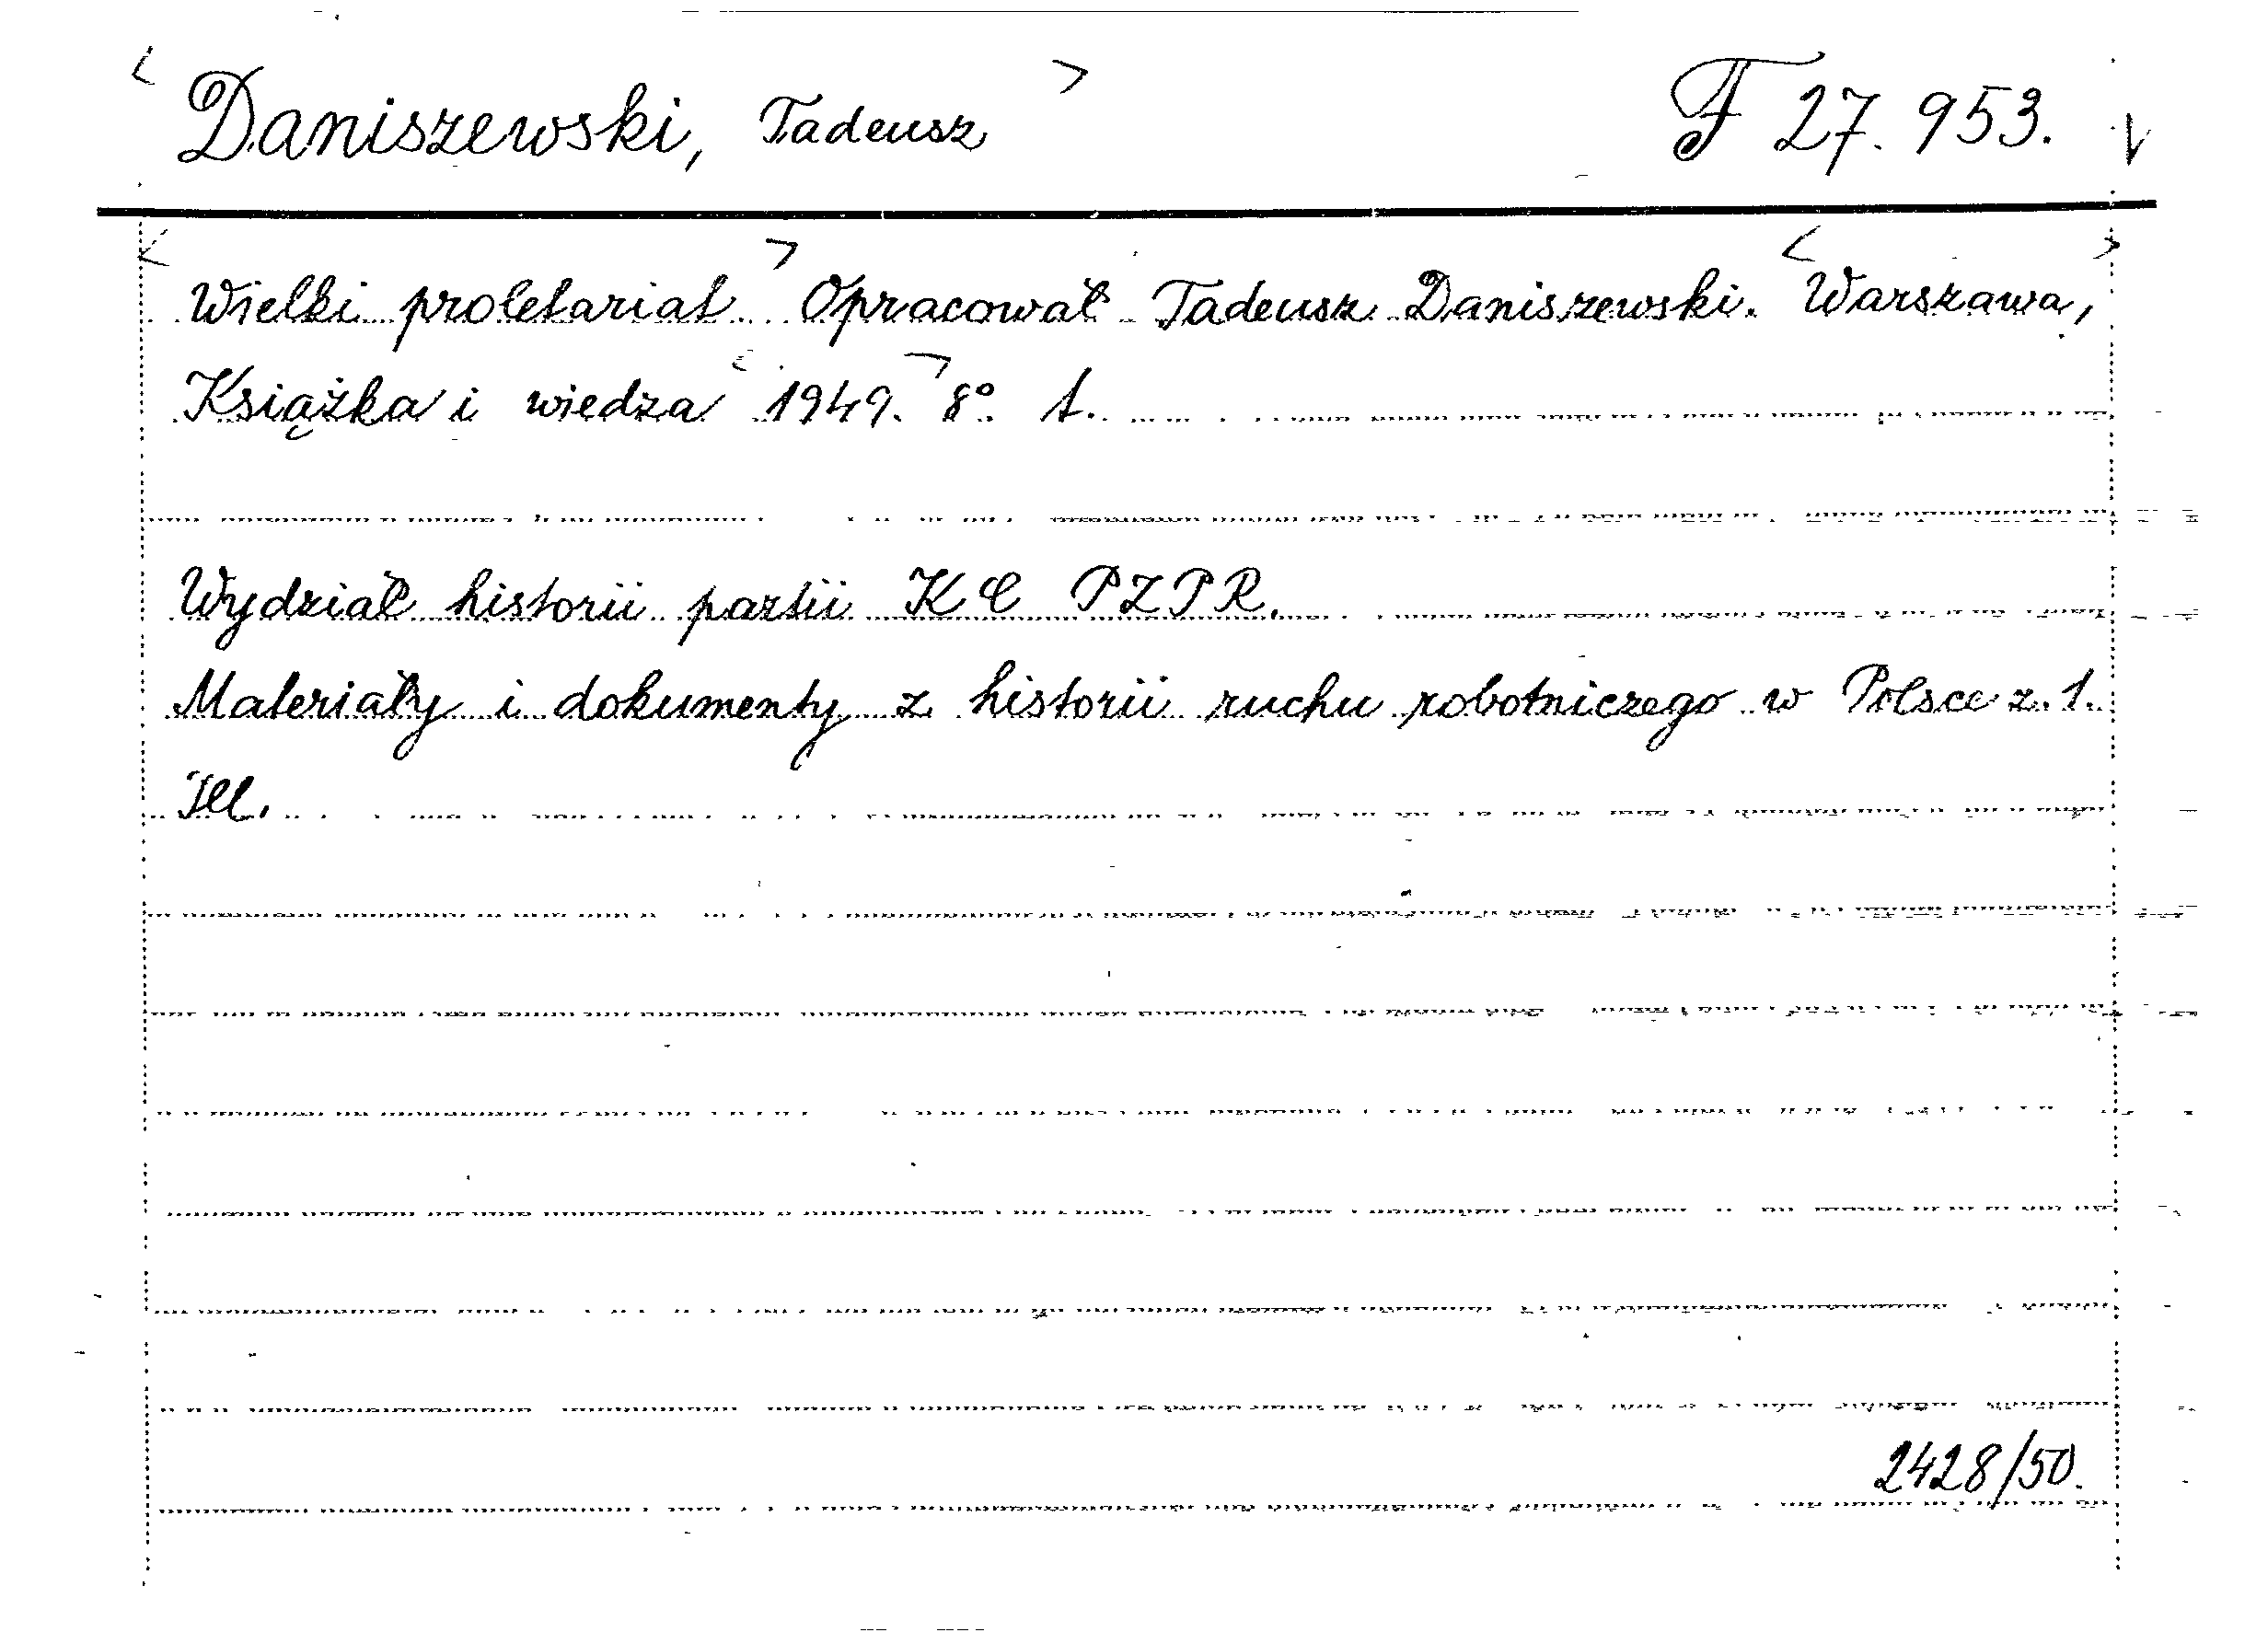 < Daniszewski, Tadeusz > F 27.953. V
< Wielki proletariat > Opracował Tadeusz Daniszewski. < Warszawa, >
Książka i wiedza < 1949. > 8°. 1.
Wydział historii partii KC PZPR.
Materiały i dokumenty z historii ruchu robotniczego w Polsce z. 1.
Ill.
2428/50.